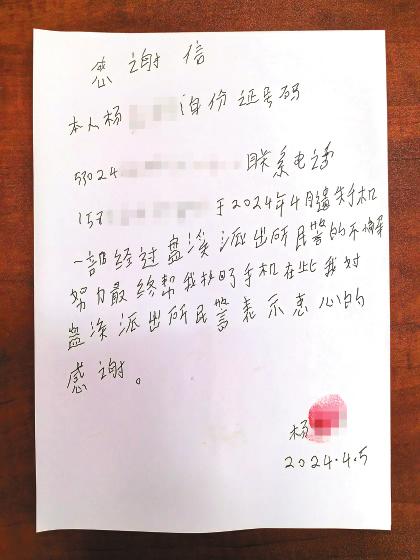 感谢信
本人杨 身份证号码
53024 联系电话
157 于2024年4月遗失手机
一部经过盘溪派出所民警的不懈
努力最终帮我找回了手机在此我对
盘溪派出所民警表示衷心的
感谢。
杨
2024.4.5